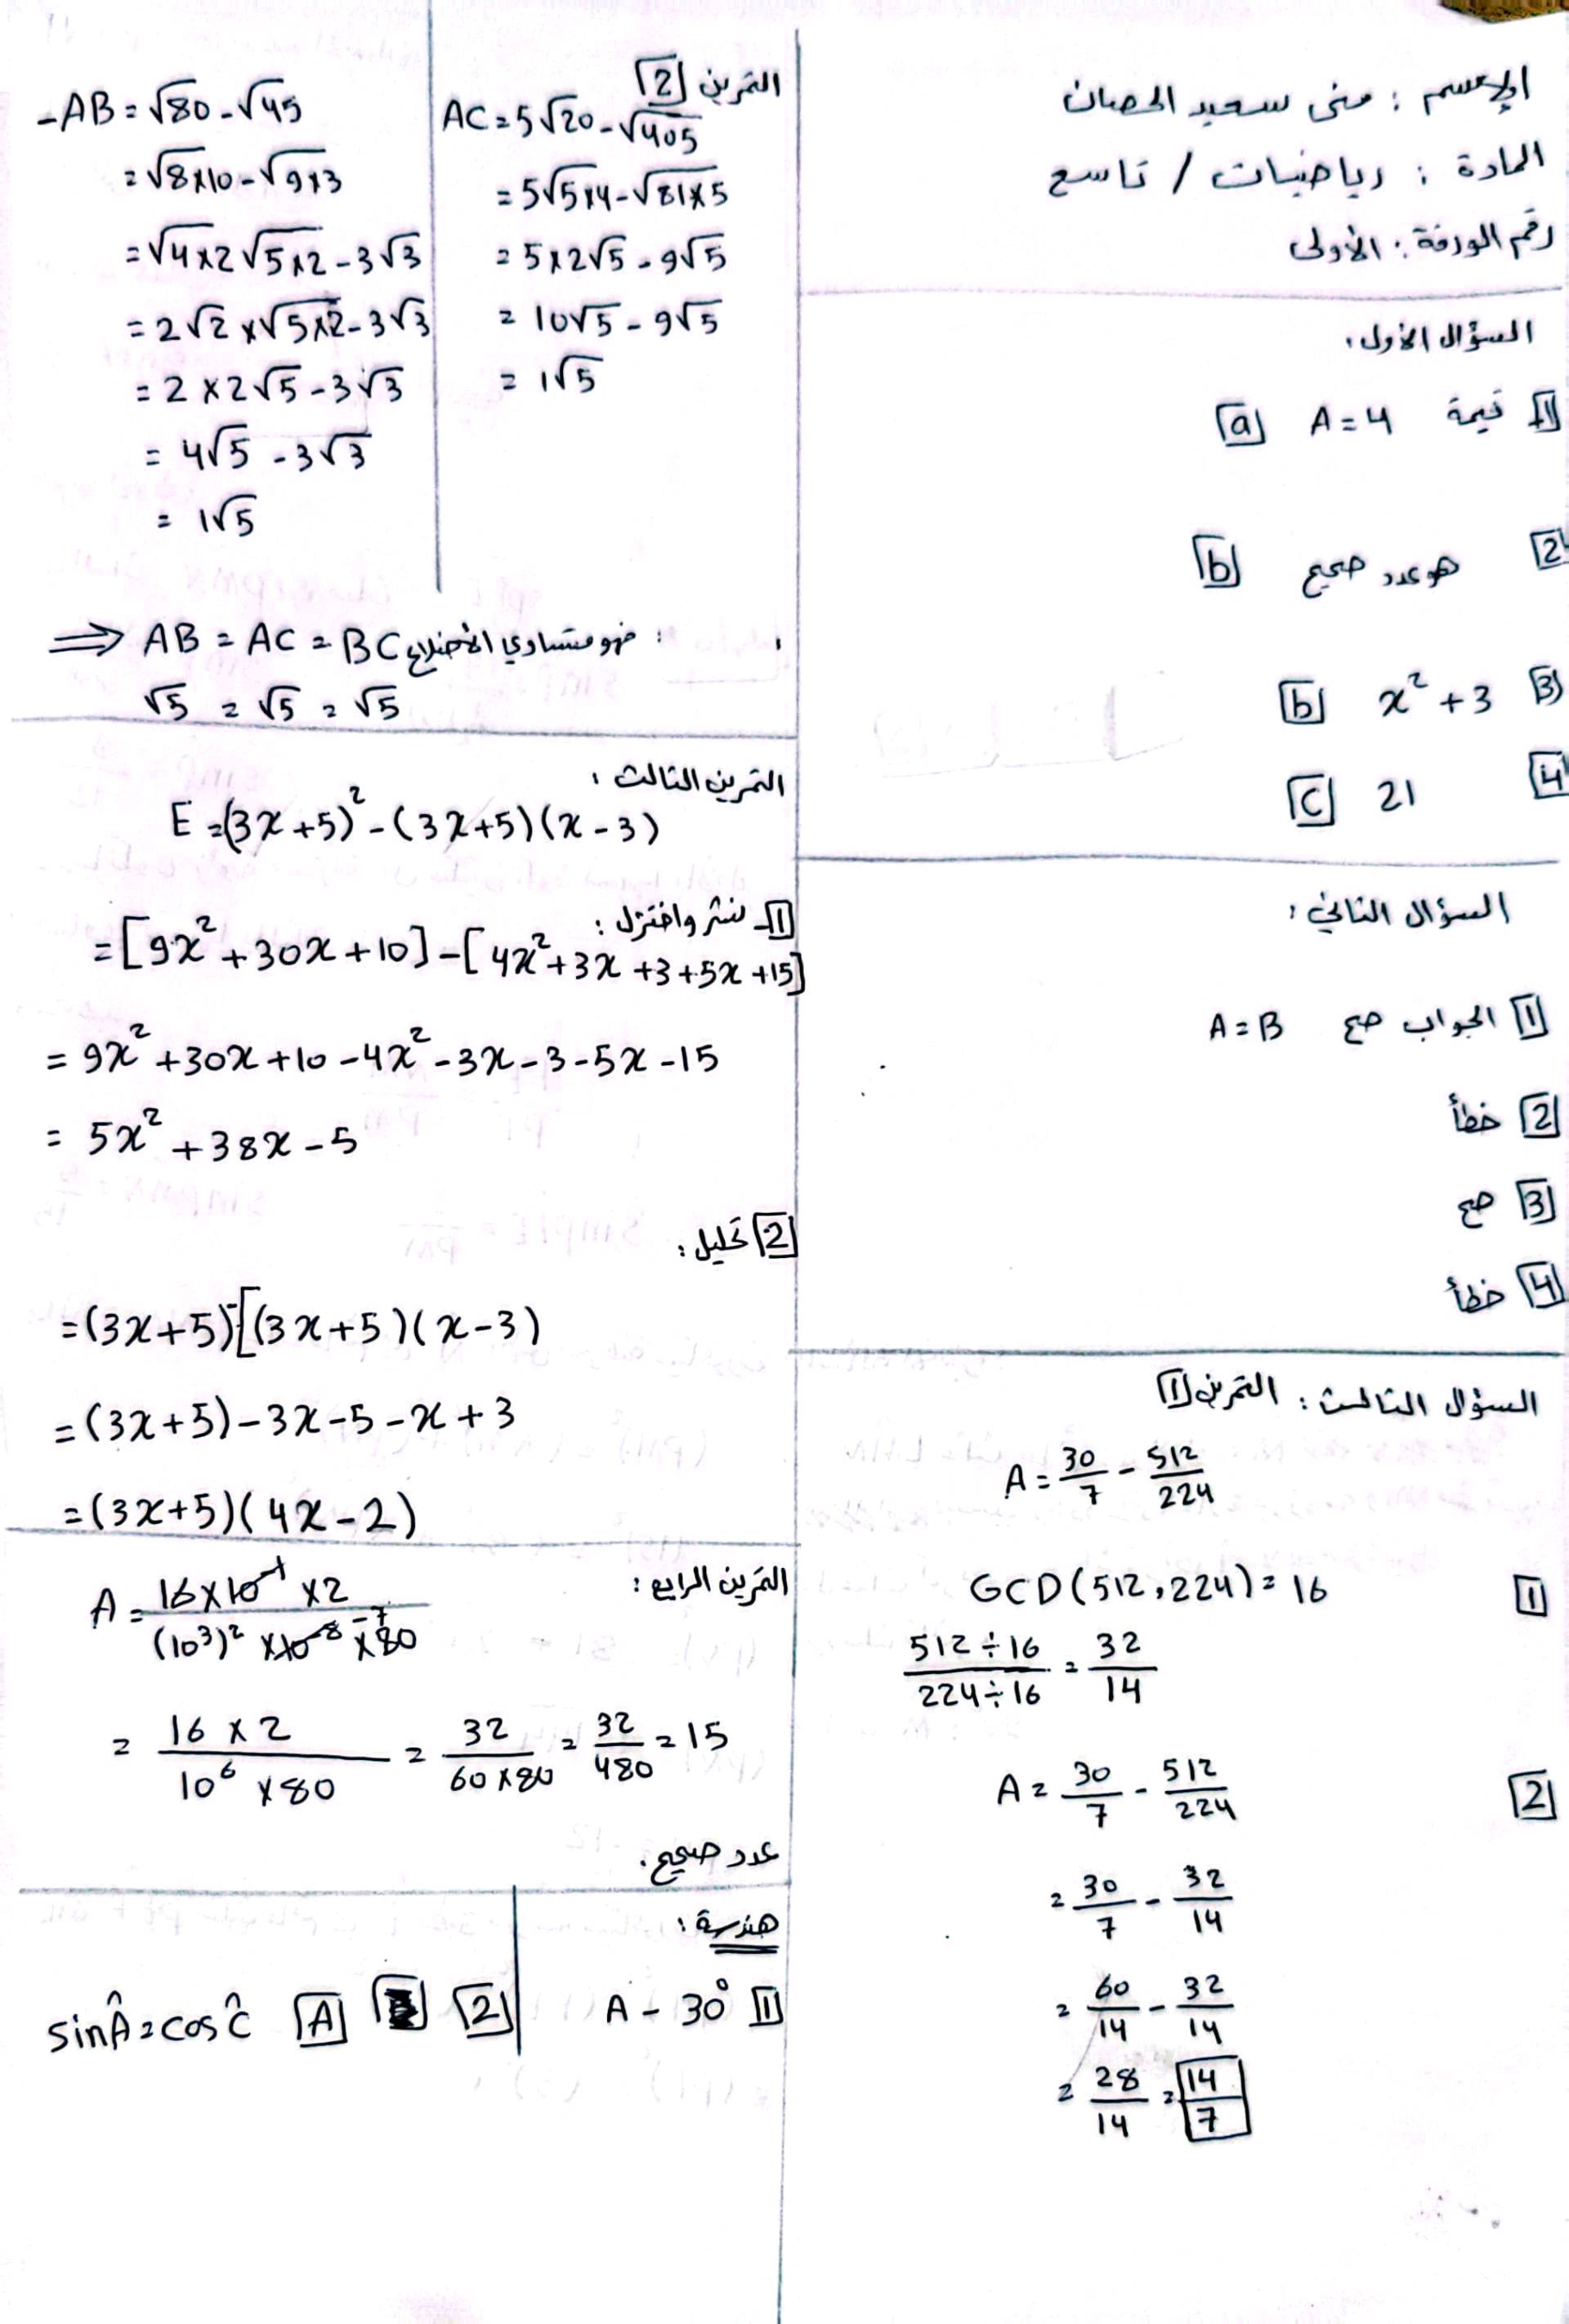 الإسم : منى سعيد الحصان
المادة : رياضيات / تاسع
رقم الورقة : الأولى
السؤال الأول :
1 قيمة A = 4 a
2 هو عدد صحيح b
3 x² + 3 b
4 21 C
السؤال الثاني :
1 الجواب صح A = B
2 خطأ
3 صح
4 خطأ
السؤال الثالث : التمرين 1
A = 30/7 - 512/224
1 GCD(512,224) = 16
512÷16/224÷16 = 32/14
2 A = 30/7 - 512/224
= 30/7 - 32/14
= 60/14 - 32/14
= 28/14 = 14/7
التمرين 2
AC = 5√20 - √405
= 5√5×4 - √81×5
= 5×2√5 - 9√5
= 10√5 - 9√5
= 1√5
- AB = √80 - √45
= √8×10 - √9×3
= √4×2 √5×2 - 3√3
= 2√2 × √5×2 - 3√3
= 2 × 2√5 - 3√3
= 4√5 - 3√3
= 1√5
⇒ AB = AC = BC فهو متساوي الأضلاع :
√5 = √5 = √5
التمرين الثالث :
E = (3x+5)² - (3x+5)(x-3)
1- نشر واختزل :
= [9x² + 30x + 10] - [4x² + 3x + 3 + 5x + 15]
= 9x² + 30x + 10 - 4x² - 3x - 3 - 5x - 15
= 5x² + 38x - 5
2 تحليل :
= (3x+5)-[(3x+5)(x-3)
= (3x+5) - 3x - 5 - x + 3
= (3x+5)(4x-2)
التمرين الرابع :
A = 16×10⁻¹ ×2/(10³)² ×10⁻⁸ ⁻⁷×80
= 16 × 2/10⁶ × 80 = 32/60×80 = 32/480 = 15
عدد صحيح .
هندسة :
1 A - 30°
2 A sinÂ = cosĈ